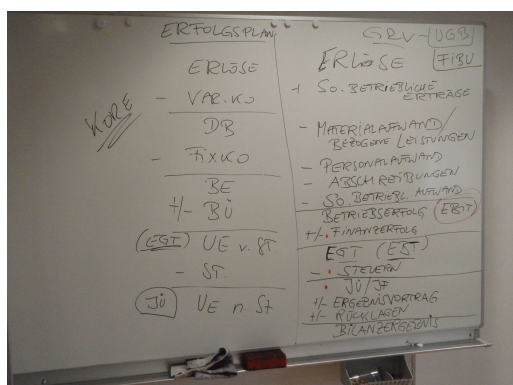 KORE
ERFOLGSPLAN
ERLÖSE
- VAR.KO
DB
- FIXKO
BE
+/- BÜ
(EGT) UE v. ST.
- ST.
JÜ UE n. St
GRV - UGB
ERLÖSE FIBU
+ SO. BETRIEBLICHE
ERTRÄGE
- MATERIALAUFWAND/
BEZOGENE LEISTUNGEN
- PERSONALAUFWAND
- ABSCHREIBUNGEN
- SO. BETRIEBL. AUFWAND
BETRIEBSERFOLG (EBIT)
+/- FINANZERFOLG
EGT (EBT)
- STEUERN
JÜ/JF
+/- ERGEBNISVORTRAG
+/- RÜCKLAGEN
BILANZERGEBNIS